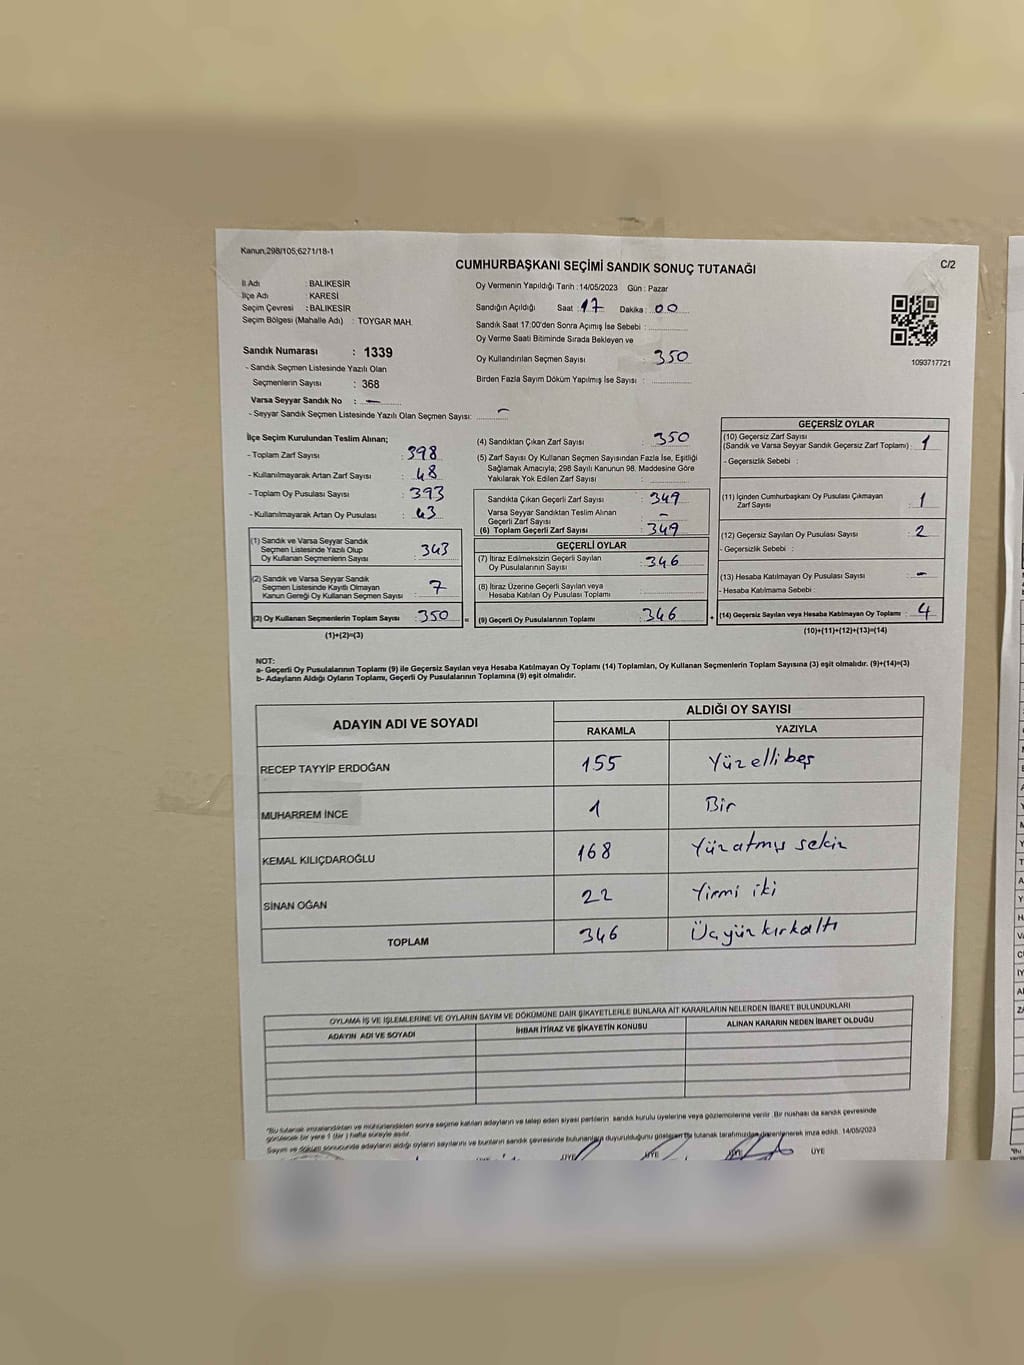 Kanun,298/105;6271/18-1
C/2
CUMHURBAŞKANI SEÇİMİ SANDIK SONUÇ TUTANAĞI
İl Adı : BALIKESİR
İlçe Adı : KARESİ
Seçim Çevresi : BALIKESİR
Seçim Bölgesi (Mahalle Adı) : TOYGAR MAH.
Sandık Numarası : 1339
- Sandık Seçmen Listesinde Yazılı Olan
Seçmenlerin Sayısı : 368
Varsa Seyyar Sandık No : —
- Seyyar Sandık Seçmen Listesinde Yazılı Olan Seçmen Sayısı: —
Oy Vermenin Yapıldığı Tarih : 14/05/2023 Gün : Pazar
Sandığın Açıldığı Saat : 17 Dakika : 00
Sandık Saat 17:00'den Sonra Açımış İse Sebebi :
Oy Verme Saati Bitiminde Sırada Bekleyen ve
Oy Kullandırılan Seçmen Sayısı : 350
Birden Fazla Sayım Döküm Yapılmış İse Sayısı :
1093717721
İlçe Seçim Kurulundan Teslim Alınan;
- Toplam Zarf Sayısı : 398
- Kullanılmayarak Artan Zarf Sayısı : 48
- Toplam Oy Pusulası Sayısı : 393
- Kullanılmayarak Artan Oy Pusulası : 43
(1) Sandık ve Varsa Seyyar Sandık
Seçmen Listesinde Yazılı Olup
Oy Kullanan Seçmenlerin Sayısı : 343
(2) Sandık ve Varsa Seyyar Sandık
Seçmen Listesinde Kayıtlı Olmayan
Kanun Gereği Oy Kullanan Seçmen Sayısı : 7
(3) Oy Kullanan Seçmenlerin Toplam Sayısı : 350
(1)+(2)=(3)
(4) Sandıktan Çıkan Zarf Sayısı : 350
(5) Zarf Sayısı Oy Kullanan Seçmen Sayısından Fazla İse, Eşitliği
Sağlamak Amacıyla; 298 Sayılı Kanunun 98. Maddesine Göre
Yakılarak Yok Edilen Zarf Sayısı :
Sandıkta Çıkan Geçerli Zarf Sayısı : 349
Varsa Seyyar Sandıktan Teslim Alınan
Geçerli Zarf Sayısı : —
(6) Toplam Geçerli Zarf Sayısı : 349
GEÇERLİ OYLAR
(7) İtiraz Edilmeksizin Geçerli Sayılan
Oy Pusulalarının Sayısı : 346
(8) İtiraz Üzerine Geçerli Sayılan veya
Hesaba Katılan Oy Pusulası Toplamı :
(9) Geçerli Oy Pusulalarının Toplamı : 346
GEÇERSİZ OYLAR
(10) Geçersiz Zarf Sayısı
(Sandık ve Varsa Seyyar Sandık Geçersiz Zarf Toplamı) : 1
- Geçersizlik Sebebi :
(11) İçinden Cumhurbaşkanı Oy Pusulası Çıkmayan
Zarf Sayısı : 1
(12) Geçersiz Sayılan Oy Pusulası Sayısı : 2
- Geçersizlik Sebebi :
(13) Hesaba Katılmayan Oy Pusulası Sayısı : —
- Hesaba Katılmama Sebebi :
(14) Geçersiz Sayılan veya Hesaba Katılmayan Oy Toplamı : 4
(10)+(11)+(12)+(13)=(14)
NOT:
a- Geçerli Oy Pusulalarının Toplamı (9) ile Geçersiz Sayılan veya Hesaba Katılmayan Oy Toplamı (14) Toplamları, Oy Kullanan Seçmenlerin Toplam Sayısına (3) eşit olmalıdır. (9)+(14)=(3)
b- Adayların Aldığı Oyların Toplamı, Geçerli Oy Pusulalarının Toplamına (9) eşit olmalıdır.
ADAYIN ADI VE SOYADI
ALDIĞI OY SAYISI
RAKAMLA YAZIYLA
RECEP TAYYİP ERDOĞAN 155 Yüzellibeş
MUHARREM İNCE 1 Bir
KEMAL KILIÇDAROĞLU 168 Yüzatmış sekiz
SİNAN OĞAN 22 Yirmi iki
TOPLAM 346 Üçyüzkırkaltı
OYLAMA İŞ VE İŞLEMLERİNE VE OYLARIN SAYIM VE DÖKÜMÜNE DAİR ŞİKAYETLERLE BUNLARA AİT KARARLARIN NELERDEN İBARET BULUNDUKLARI
ADAYIN ADI VE SOYADI İHBAR İTİRAZ VE ŞİKAYETİN KONUSU ALINAN KARARIN NEDEN İBARET OLDUĞU
*Bu tutanak imzalandıktan ve mühürlendikten sonra seçime katılan adayların ve talep eden siyasi partilerin sandık kurulu üyelerine veya gözlemcilerine verilir. Bir nüshası da sandık çevresinde
görülecek bir yere 1 (bir) hafta süreyle asılır.
Sayım ve döküm sonucunda adayların aldığı oyların sayılarını ve bunların sandık çevresinde bulunanlara duyurulduğunu gösteren bu tutanak tarafımızdan düzenlenerek imza edildi. 14/05/2023
ÜYE ÜYE ÜYE